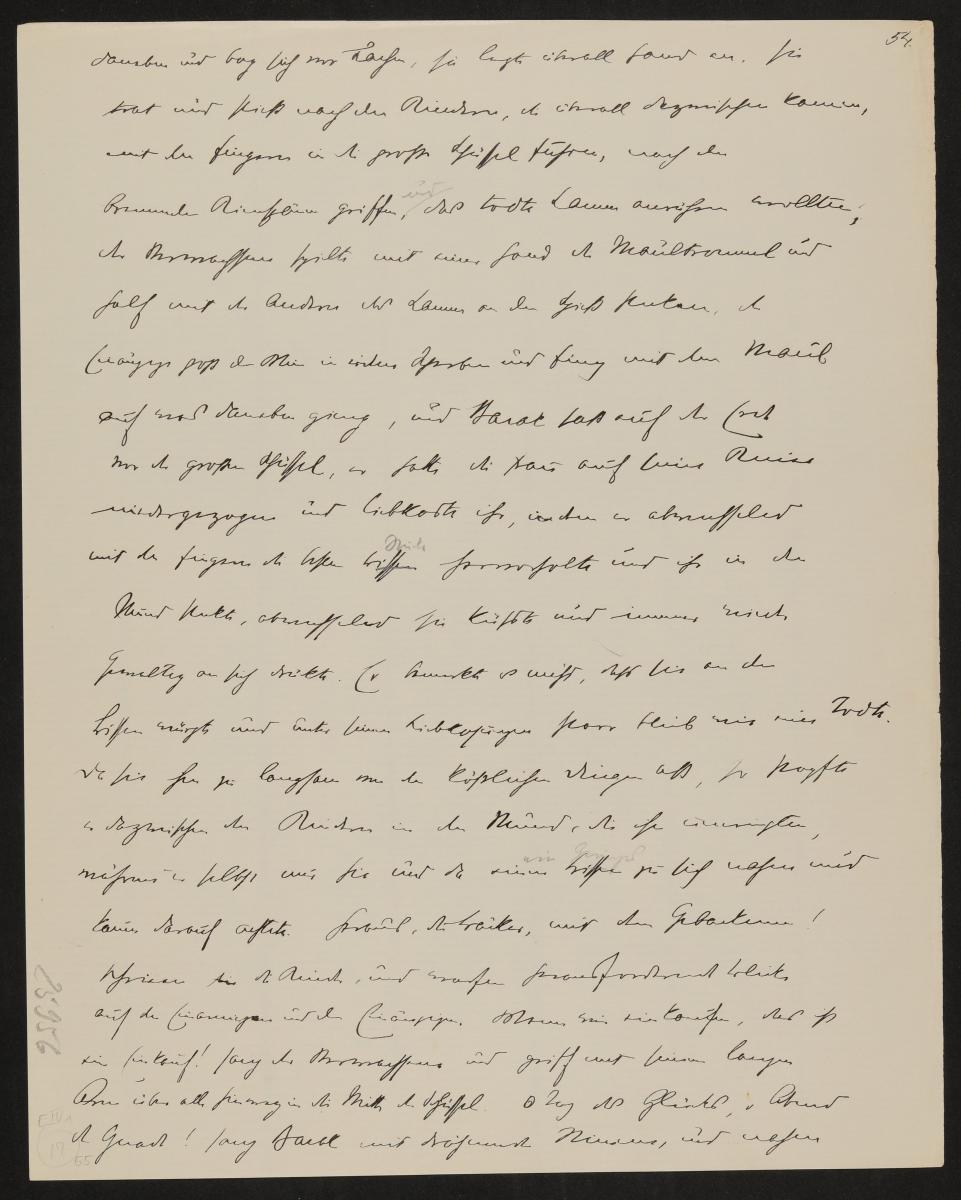 54.
daneben und bog sich vor Lachen, sie legte überall Hand an. Sie
trat und stieß nach den Kindern, die überall dazwischen kamen,
mit den Fingern in die große Schüssel fuhren, nach den
brennenden Kienspänen griffen, und das todte Lamm anrühren wollten;
der Verwachsene spielte mit einer Hand die Maultrommel und
half mit der anderen das Lamm an den Spieß stecken, der
Einäugige goß den Wein in irdene Scherben und fing mit dem Maul
auf was daneben gieng, und Barak saß auf der Erde
vor der großen Schüssel, er hatte die Frau auf seine Kniee
niedergezogen und liebkoste ihr, indem er abwechselnd
mit den Fingern die besten Bissen Stücke hervorholte und ihr in den
Mund steckte, abwechselnd sie küßte und immer wieder
gewaltig an sich drückte. Er bemerkte es nicht, daß sie an den
Bissen würgte und unter seinen Liebkosungen starr blieb wie eine Todte.
Da sie ihm zu langsam von den köstlichen Dingen aß, so stopfte
er dazwischen den Kindern in den Mund, die ihn umringten,
während er selbst nur hie und da einen Bissen zu sich nahm und
kaum darauf achtete. Heraus, ihr Bäcker, mit dem Gebackenen!
schrieen die Kinder, und warfen herausfordernde Blicke
auf den Einarmigen und den Einäugigen. Wenn wir einkaufen, das ist
ein Einkauf! sang der Verwachsene und griff mit seinem langen
Arm über alle hinweg in die Mitte der Schüssel. O Tag des Glücks, o Abend
der Gnade! sang Barak mit dröhnender Stimme, und nahm
25956